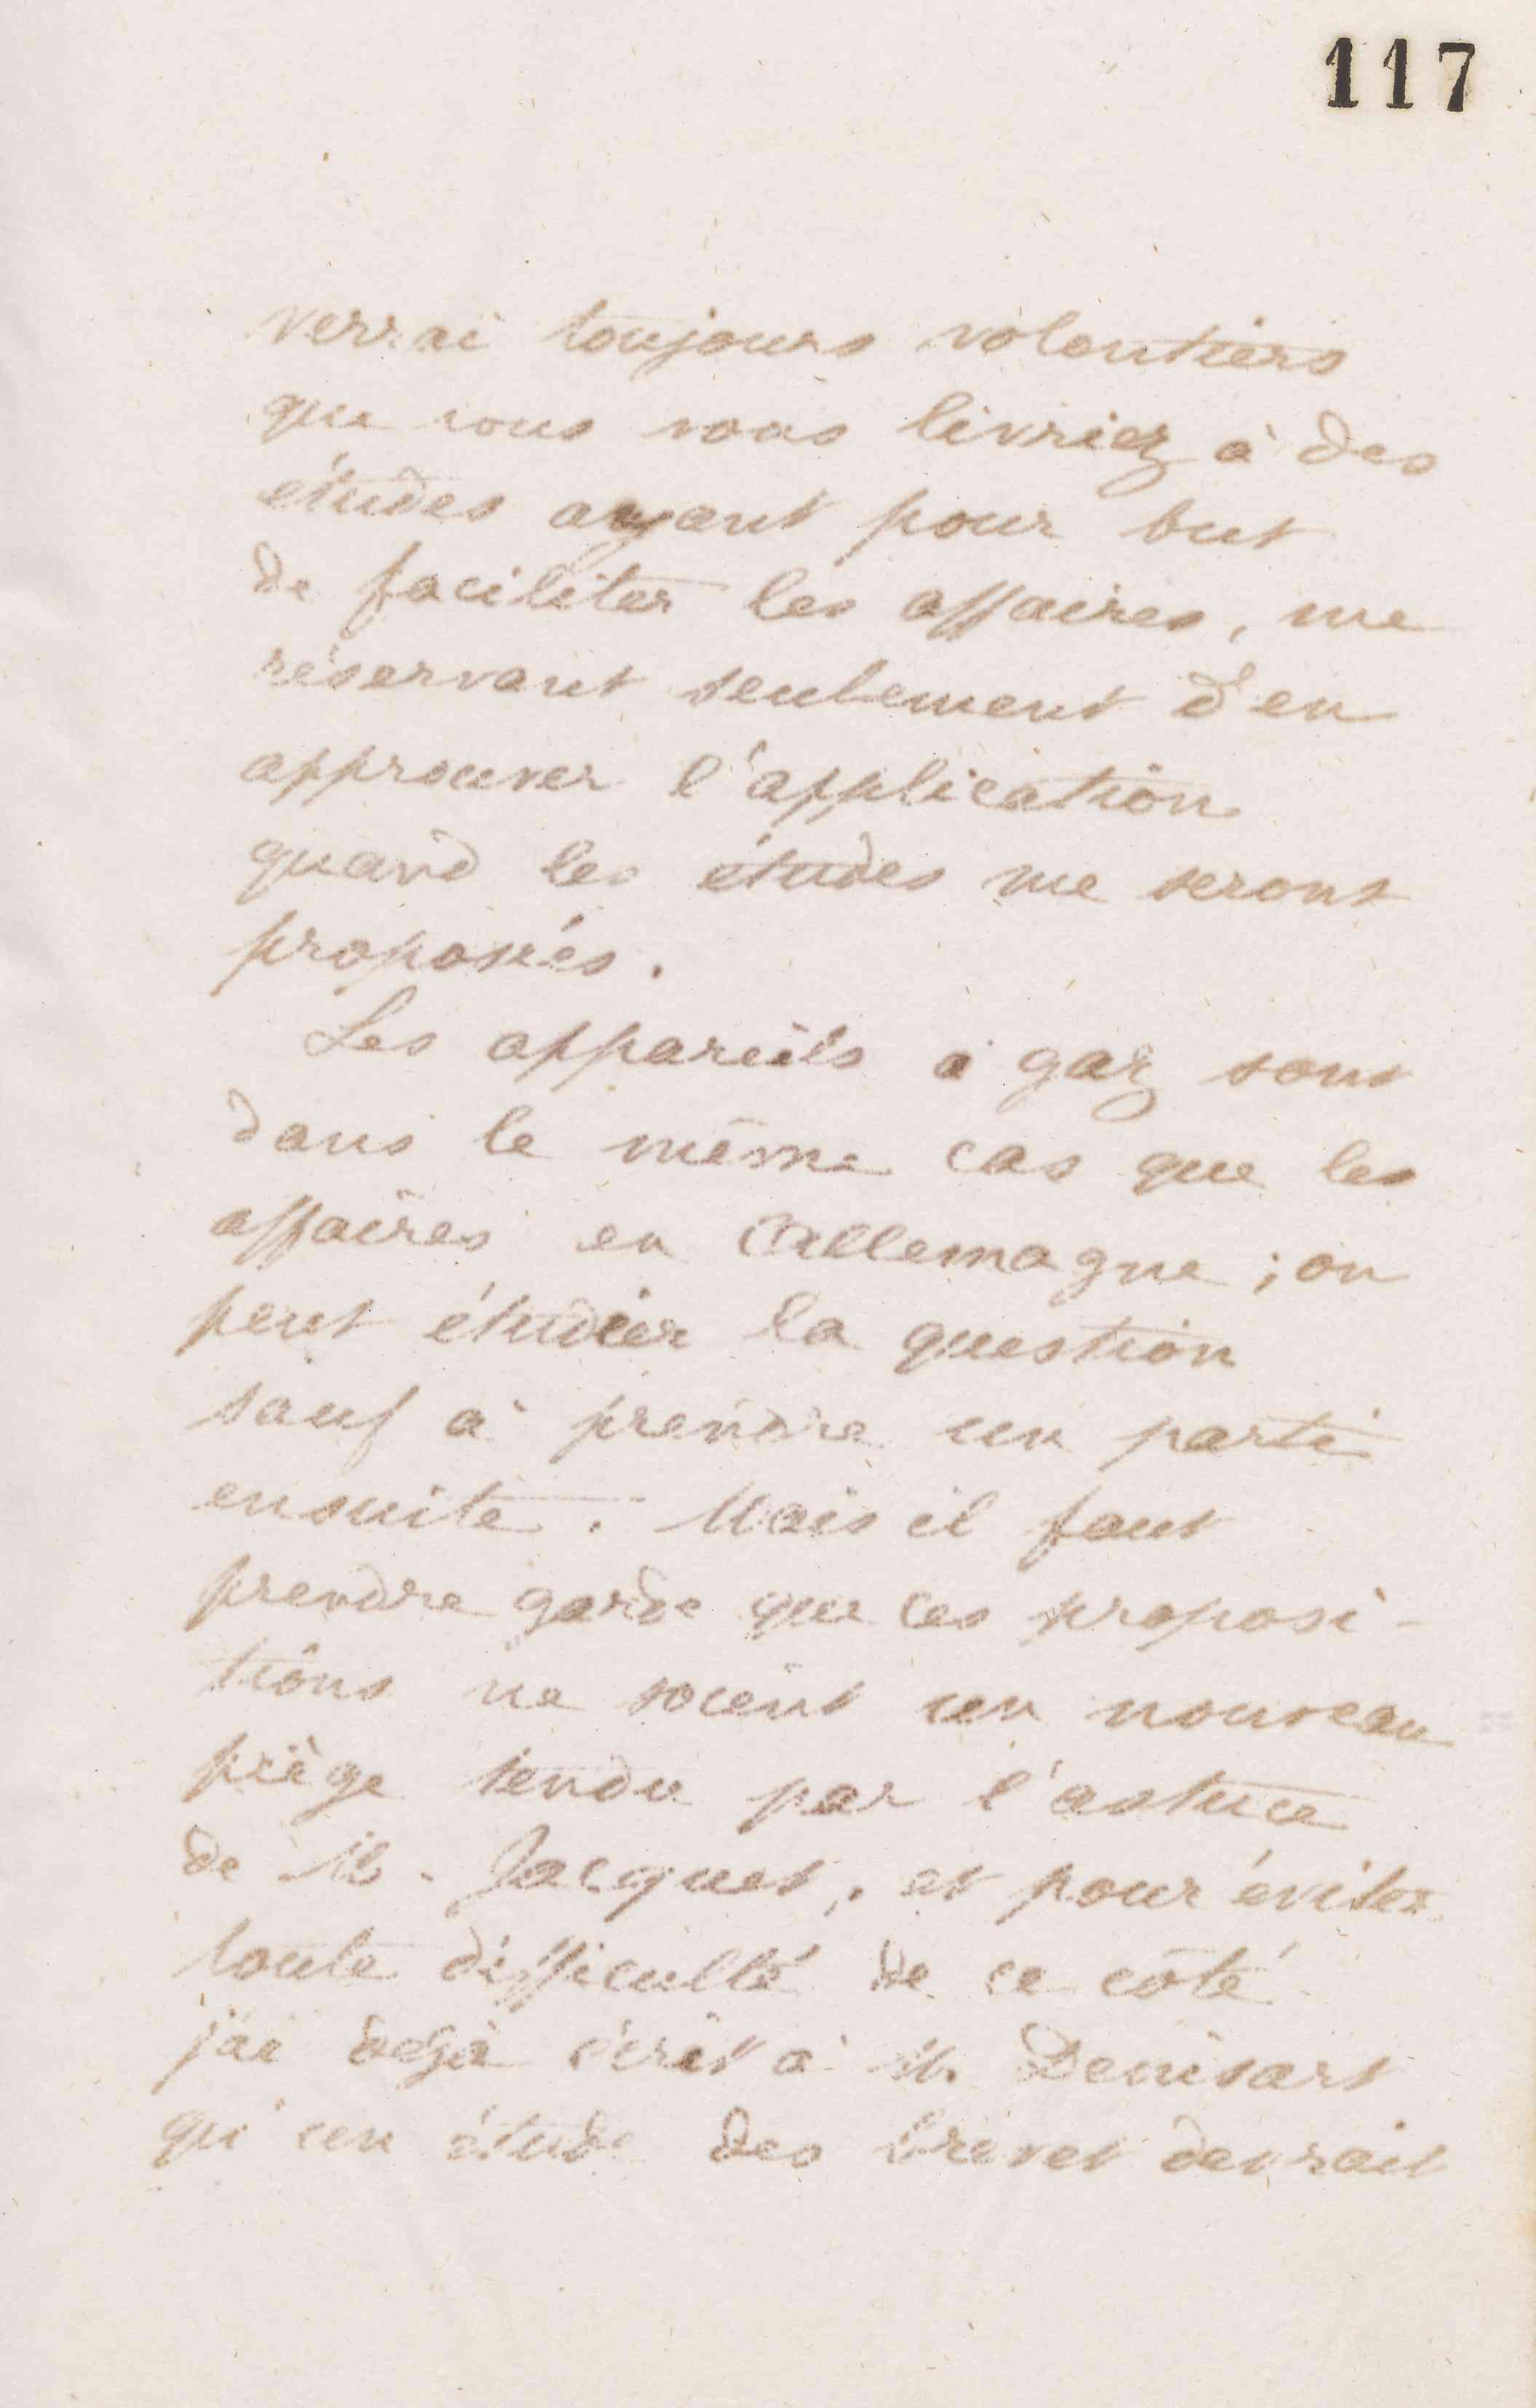 117
verrai toujours volontiers
que vous vous livriez à des
études ayant pour but
de faciliter les affaires, me
réservant seulement d'en
approuver l'application
quand les études me seront
proposées.
Les appareils à gaz sont
dans le même cas que les
affaires en Allemagne ; on
peut étudier la question
sauf à prendre un parti
ensuite. Mais il faut
prendre garde que ces proposi-
tions ne soient un nouveau
piège tendu par l'astuce
de M. Jacquet, et pour éviter
toute difficulté de ce côté
j'ai déjà écrit à M. Denisart
qu'un étude des brevet devrait